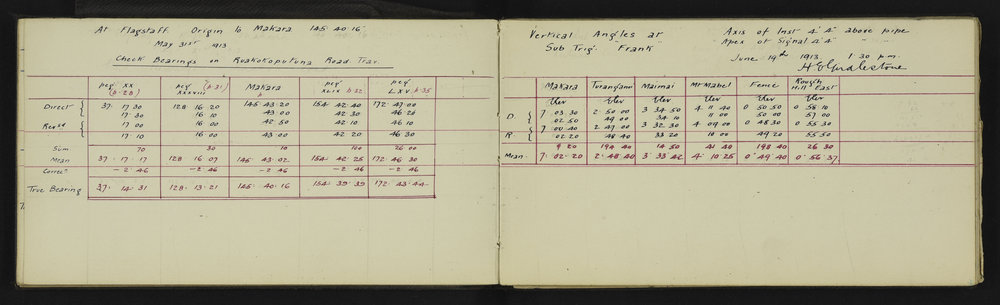 At Flagstaff. Origin to Makara 145 40 16
May 31st 1913
Check Bearings on Ruakokoputuna Road Trav.
peg XX (p.28) peg XXXVIII (p.31) Makara peg XLIX p.32 peg LXV p.35
Direct 37 17 30 128 16 20 145 43 20 154 42 40 172 47 00
17 30 16 10 43 00 42 30 46 20
Revsd 17 00 16 00 42 50 42 10 46 10
17 10 16 00 43 00 42 20 46 30
Sum 70 30 10 100 26 00
Mean 37 17 17 128 16 07 145 43 02 154 42 25 172 46 30
Correcn -2 46 -2 46 -2 46 -2 46 -2 46
True Bearing 37 14 31 128 13 21 145 40 16 154 39 39 172 43 44
7.
Vertical Angles at Axis of Inst 4' 4" above pipe
Sub Trig. "Frank" Apex of Signal 4' 4" " "
June 19th 1913. 1 30 p.m.
H E Girdlestone
Makara Turanganui Maimai Mt Mabel Fence Rough Hill East
Elev Elev Elev Elev Elev
D. 7 03 30 2 50 00 3 34 50 4 11 40 0 50 50 0 58 10
02 50 49 00 34 10 11 00 50 00 57 00
R 7 00 40 2 47 00 3 32 30 4 09 00 0 48 30 0 55 30
02 20 48 40 33 20 10 00 49 20 55 50
9 20 194 40 14 50 41 40 198 40 26 30
Mean 7 02 20 2 48 40 3 33 42 4 10 25 0 49 40 0 56 37